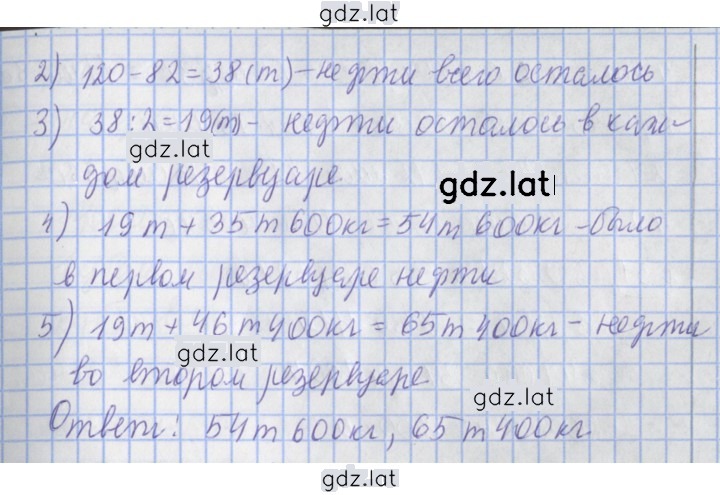 gdz.lat
2) 120-82=38(т)-нефти всего осталось
3) 38:2=19(т)- нефти осталось в каж-
gdz.lat
дом резервуаре
gdz.lat
4) 19т+35т600кг=54т 600кг-было
в первом резервуаре нефти
5) 19т+46т400кг=65т400кг- нефти
gdz.lat
во втором резервуаре
gdz.lat
Ответ: 54т600кг, 65т400кг
gdz.lat